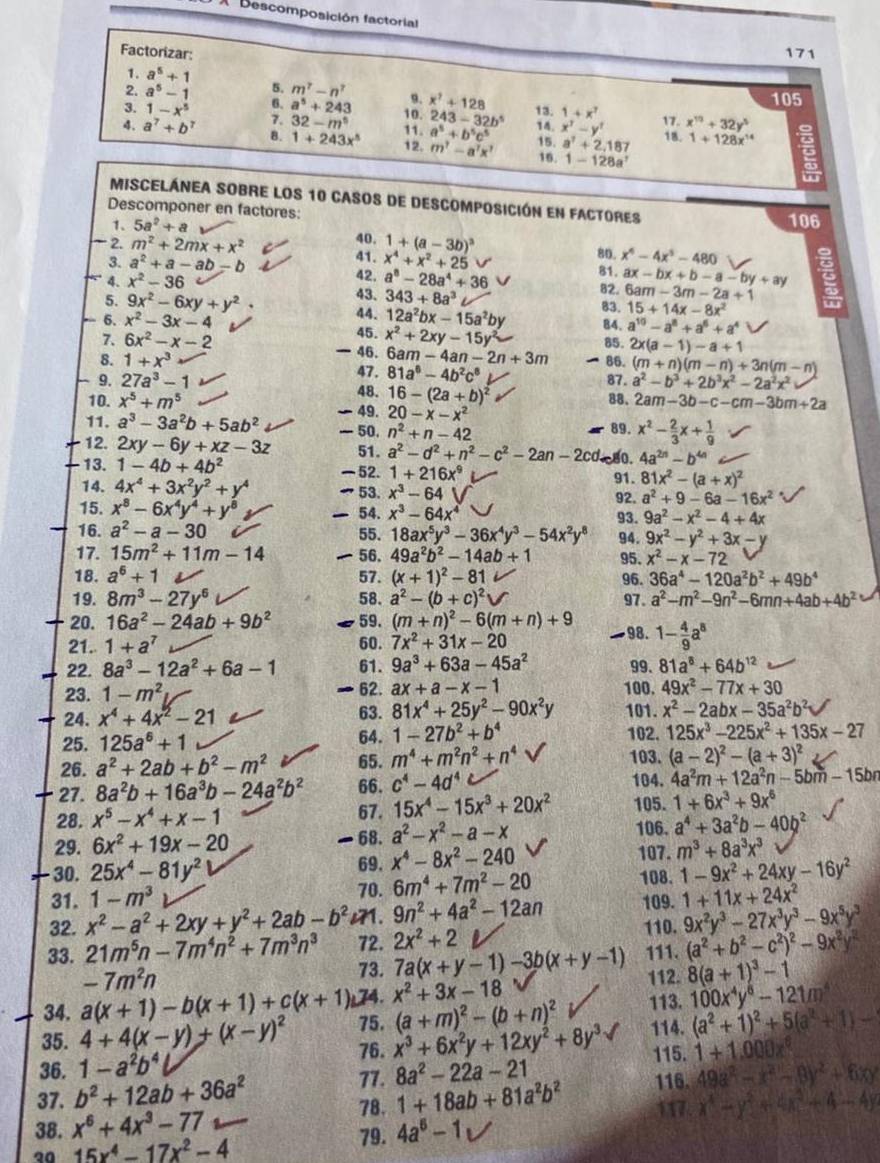 Descomposición factorial
171
Factorizar:
105
Ejercicio
1. a⁵ + 1
2. a⁵ − 1
3. 1 − x⁵
4. a⁷ + b⁷
5. m⁷ − n⁷
6. a⁵ + 243
7. 32 − m⁵
8. 1 + 243x⁵
9. x⁷ + 128
10. 243 − 32b⁵
11. a⁵ + b⁵c⁵
12. m⁷ − a⁷x⁷
13. 1 + x⁷
14. x⁷ − y⁷
15. a⁷ + 2,187
16. 1 − 128a⁷
17. x¹⁰ + 32y⁵
18. 1 + 128x¹⁴
MISCELÁNEA SOBRE LOS 10 CASOS DE DESCOMPOSICIÓN EN FACTORES
106
Ejercicio
Descomponer en factores:
1. 5a² + a
2. m² + 2mx + x²
3. a² + a − ab − b
4. x² − 36
5. 9x² − 6xy + y²
6. x² − 3x − 4
7. 6x² − x − 2
8. 1 + x³
9. 27a³ − 1
10. x⁵ + m⁵
11. a³ − 3a²b + 5ab²
12. 2xy − 6y + xz − 3z
13. 1 − 4b + 4b²
14. 4x⁴ + 3x²y² + y⁴
15. x⁸ − 6x⁴y⁴ + y⁸
16. a² − a − 30
17. 15m² + 11m − 14
18. a⁶ + 1
19. 8m³ − 27y⁶
20. 16a² − 24ab + 9b²
21. 1 + a⁷
22. 8a³ − 12a² + 6a − 1
23. 1 − m²
24. x⁴ + 4x² − 21
25. 125a⁶ + 1
26. a² + 2ab + b² − m²
27. 8a²b + 16a³b − 24a²b²
28. x⁵ − x⁴ + x − 1
29. 6x² + 19x − 20
30. 25x⁴ − 81y²
31. 1 − m³
32. x² − a² + 2xy + y² + 2ab − b²
33. 21m⁵n − 7m⁴n² + 7m³n³
− 7m²n
34. a(x + 1) − b(x + 1) + c(x + 1)
35. 4 + 4(x − y) + (x − y)²
36. 1 − a²b⁴
37. b² + 12ab + 36a²
38. x⁶ + 4x³ − 77
39. 15x⁴ − 17x² − 4
40. 1 + (a − 3b)³
41. x⁴ + x² + 25
42. a⁸ − 28a⁴ + 36
43. 343 + 8a³
44. 12a²bx − 15a²by
45. x² + 2xy − 15y²
46. 6am − 4an − 2n + 3m
47. 81a⁶ − 4b²c⁸
48. 16 − (2a + b)²
49. 20 − x − x²
50. n² + n − 42
51. a² − d² + n² − c² − 2an − 2cd
52. 1 + 216x⁹
53. x³ − 64
54. x³ − 64x⁴
55. 18ax⁵y³ − 36x⁴y³ − 54x²y⁸
56. 49a²b² − 14ab + 1
57. (x + 1)² − 81
58. a² − (b + c)²
59. (m + n)² − 6(m + n) + 9
60. 7x² + 31x − 20
61. 9a³ + 63a − 45a²
62. ax + a − x − 1
63. 81x⁴ + 25y² − 90x²y
64. 1 − 27b² + b⁴
65. m⁴ + m²n² + n⁴
66. c⁴ − 4d⁴
67. 15x⁴ − 15x³ + 20x²
68. a² − x² − a − x
69. x⁴ − 8x² − 240
70. 6m⁴ + 7m² − 20
71. 9n² + 4a² − 12an
72. 2x² + 2
73. 7a(x + y − 1) −3b(x + y −1)
74. x² + 3x − 18
75. (a + m)² − (b + n)²
76. x³ + 6x²y + 12xy² + 8y³
77. 8a² − 22a − 21
78. 1 + 18ab + 81a²b²
79. 4a⁶ − 1
80. x⁶ − 4x³ − 480
81. ax − bx + b − a − by + ay
82. 6am − 3m − 2a + 1
83. 15 + 14x − 8x²
84. a¹⁰ − a⁸ + a⁶ + a⁴
85. 2x(a − 1) − a + 1
86. (m + n)(m − n) + 3n(m − n)
87. a² − b³ + 2b³x² − 2a²x²
88. 2am−3b−c−cm−3bm+2a
89. x² − 2/3x + 1/9
90. 4a²ⁿ − b⁴ⁿ
91. 81x² − (a + x)²
92. a² + 9 − 6a − 16x²
93. 9a² − x² − 4 + 4x
94. 9x² − y² + 3x − y
95. x² − x − 72
96. 36a⁴ − 120a²b² + 49b⁴
97. a²−m²−9n²−6mn+4ab+4b²
98. 1− 4/9a⁸
99. 81a⁸ + 64b¹²
100. 49x² − 77x + 30
101. x² − 2abx − 35a²b²
102. 125x³ −225x² + 135x − 27
103. (a − 2)² − (a + 3)²
104. 4a²m + 12a²n − 5bm − 15bn
105. 1 + 6x³ + 9x⁶
106. a⁴ + 3a²b − 40b²
107. m³ + 8a³x³
108. 1 − 9x² + 24xy − 16y²
109. 1 + 11x + 24x²
110. 9x²y³ − 27x³y³ − 9x⁵y³
111. (a² + b² − c²)² − 9x²y²
112. 8(a + 1)³ − 1
113. 100x⁴y⁶ − 121m⁴
114. (a² + 1)² + 5(a² + 1) −
115. 1 + 1,000x⁶
116. 49a² − x² − 9y² + 6xy
117. x⁴ − y² + 4x² + 4 − 4y